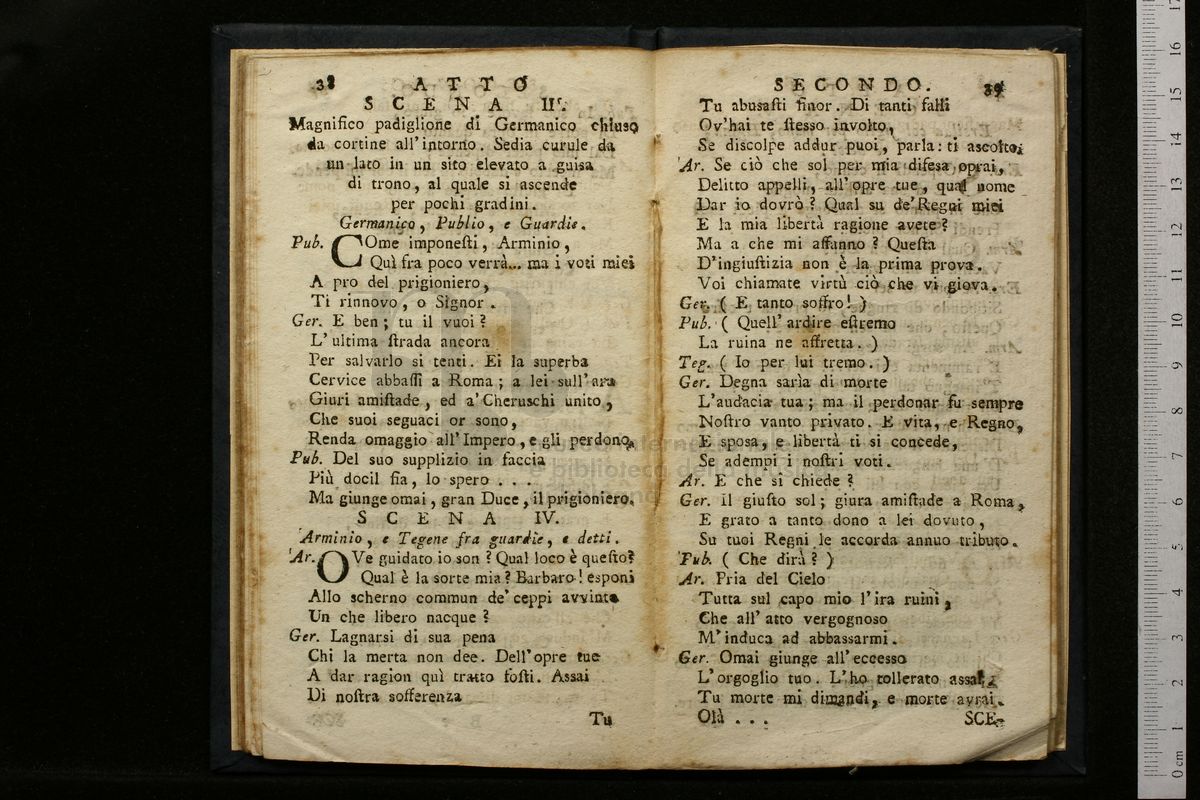 38 ATTO
SCENA IIſ.
Magnifico padiglione di Germanico chiuso
da cortine all'intorno. Sedia curule da
un lato in un sito elevato a guisa
di trono, al quale si ascende
per pochi gradini.
Germanico, Publio, e Guardie.
Pub. COme imponeſti, Arminio,
Quì fra poco verrà... ma i voti miei
A pro del prigioniero,
Ti rinnovo, o Signor.
Ger. E ben; tu il vuoi?
L'ultima ſtrada ancora
Per salvarlo si tenti. Ei la superba
Cervice abbaſſi a Roma; a lei sull'ara
Giuri amiſtade, ed a'Cheruschi unito,
Che suoi seguaci or sono,
Renda omaggio all'Impero, e gli perdono.
Pub. Del suo supplizio in faccia
Più docil fia, lo spero...
Ma giunge omai, gran Duce, il prigioniero.
SCENA IV.
Arminio, e Tegene fra guardie, e detti.
Ar. OVe guidato io son? Qual loco è queſto?
Qual è la sorte mia? Barbaro! esponi
Allo scherno commun de'ceppi avvinto
Un che libero nacque?
Ger. Lagnarsi di sua pena
Chi la merta non dee. Dell'opre tue
A dar ragion quì tratto foſti. Assai
Di noſtra sofferenza
Tu
SECONDO. 39
Tu abusaſti finor. Di tanti falli
Ov'hai te ſtesso involto,
Se discolpe addur puoi, parla: ti ascolto.
Ar. Se ciò che sol per mia difesa oprai,
Delitto appelli, all'opre tue, qual nome
Dar io dovrò? Qual su de'Regni miei
E la mia libertà ragione avete?
Ma a che mi affanno? Queſta
D'ingiuſtizia non è la prima prova.
Voi chiamate virtù ciò che vi giova.
Ger. (E tanto soffro!)
Pub. (Quell'ardire eſtremo
La ruina ne affretta.)
Teg. (Io per lui tremo.)
Ger. Degna sarìa di morte
L'audacia tua; ma il perdonar fu sempre
Noſtro vanto privato. E vita, e Regno,
E sposa, e libertà ti si concede,
Se adempi i noſtri voti.
Ar. E che si chiede?
Ger. il giuſto sol; giura amiſtade a Roma,
E grato a tanto dono a lei dovuto,
Su tuoi Regni le accorda annuo tributo.
Pub. (Che dirà?)
Ar. Pria del Cielo
Tutta sul capo mio l'ira ruini,
Che all'atto vergognoso
M'induca ad abbassarmi.
Ger. Omai giunge all'eccesso
L'orgoglio tuo. L'ho tollerato assai,
Tu morte mi dimandi, e morte avrai.
Olà...
SCE-